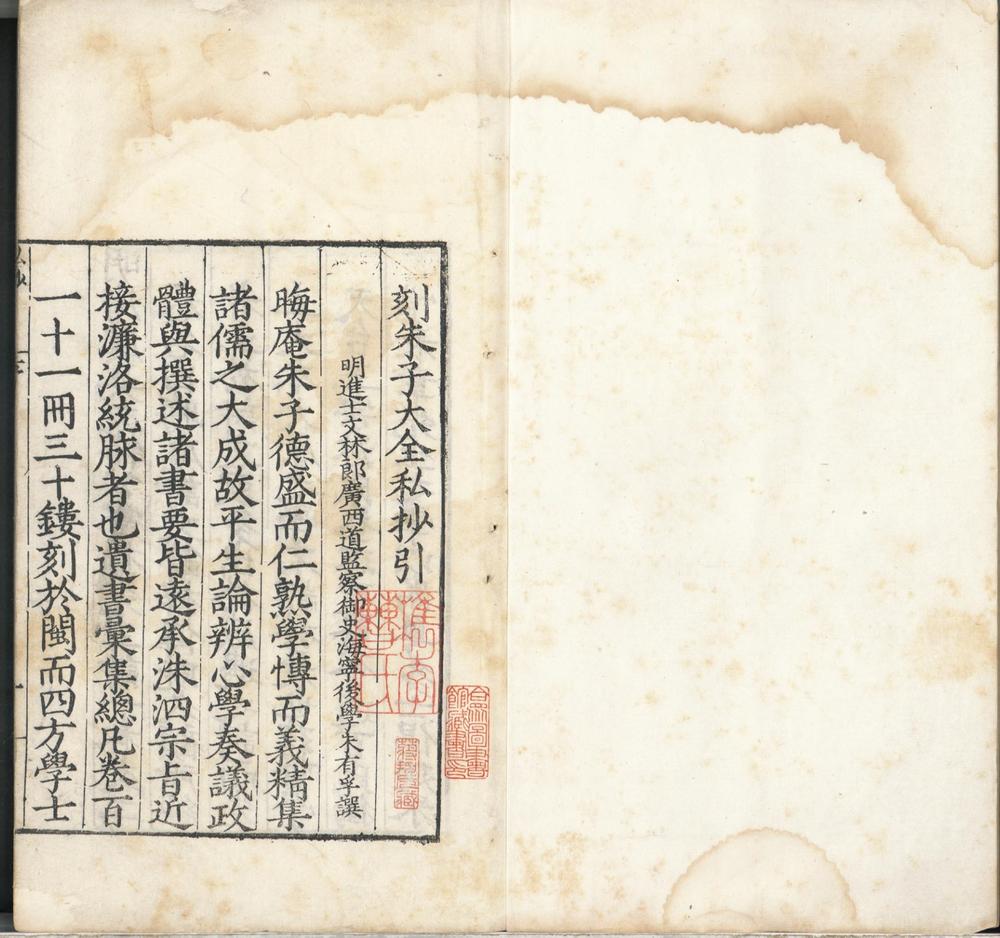 刻朱子大全私抄引
明進士文林郎廣西道監察御史海寧後學朱有孚譔
晦庵朱子德盛而仁熟學博而義精集
諸儒之大成故平生論辨心學奏議政
體與撰述諸書要皆遠承洙泗宗旨近
接濂洛統脉者也遺書彙集總凡卷百
一十一冊三十鏤刻於閩而四方學士